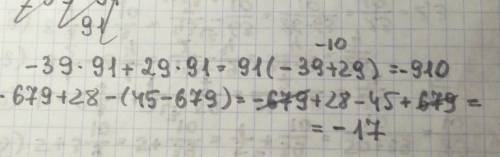 91
-10
-39·91+29·91=91(-39+29)=-910
-679+28-(45-679)=-679+28-45+679=
=-17